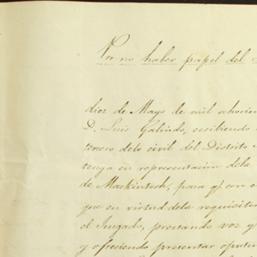 Por no haber papel del
diez de Mayo de mil
D. Luis Galindo, escribiendo
tercero de lo civil del Distrito
tenga en representacion dela
de Mackintosh, para q.
que en virtud dela requisitoria
el Juzgado, prestando voz y
y ofreciendo presentar